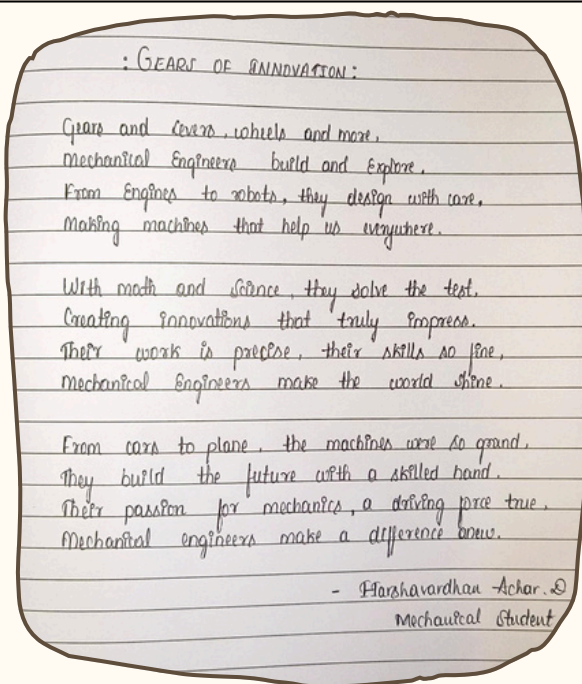 : GEARS OF INNOVATION :
Gears and levers, wheels and more,
Mechanical Engineers build and Explore.
From Engines to robots, they design with care,
Making machines that help us everywhere.
With math and Science, they solve the test,
Creating innovations that truly impress.
Their work is precise, their skills so fine,
Mechanical Engineers make the world shine.
From cars to plane, the machines were so grand,
They build the future with a skilled hand.
Their passion for mechanics, a driving force true,
Mechanical engineers make a difference anew.
- Harshavardhan Achar. D
Mechanical Student